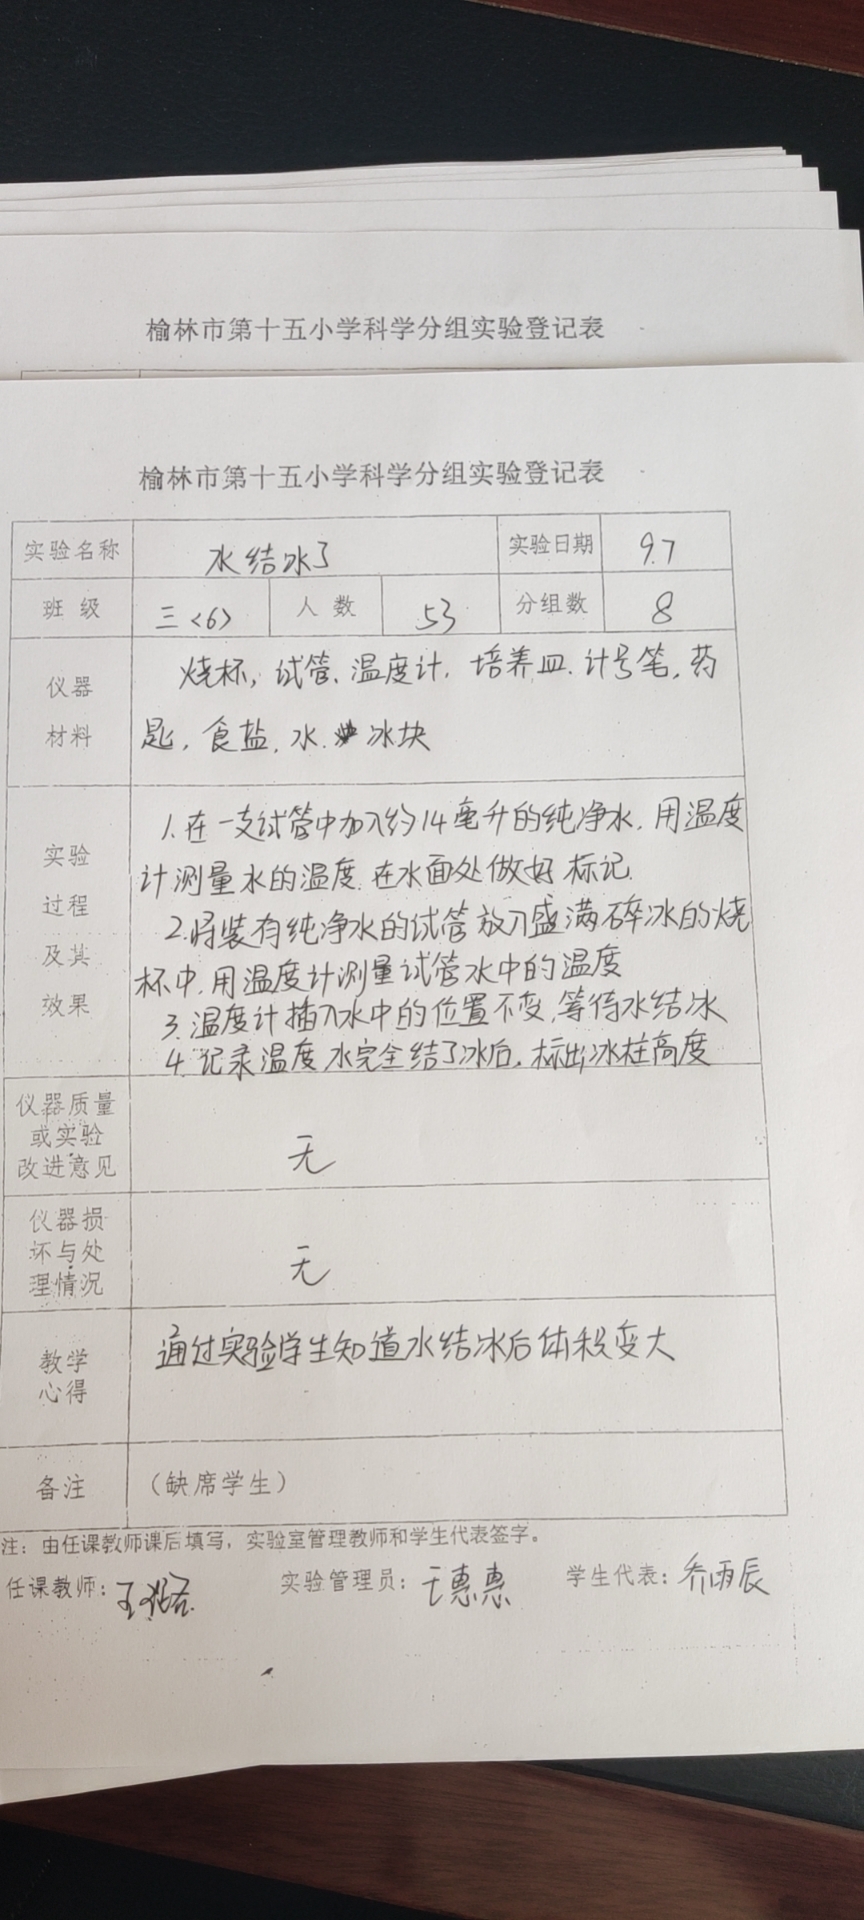 榆林市第十五小学科学分组实验登记表
榆林市第十五小学科学分组实验登记表
实验名称 水结冰了 实验日期 9.7
班级 三<6> 人数 53 分组数 8
仪器材料 烧杯, 试管、温度计. 培养皿. 计号笔, 药
匙, 食盐, 水. 冰块
实验过程及其效果 1. 在一支试管中加入约14毫升的纯净水, 用温度
计测量水的温度. 在水面处做好标记.
2. 将装有纯净水的试管放入盛满碎冰的烧
杯中, 用温度计测量试管水中的温度
3. 温度计插入水中的位置不变, 等待水结冰
4. 记录温度, 水完全结了冰后, 标出冰柱高度
仪器质量或实验改进意见 无
仪器损坏与处理情况 无
教学心得 通过实验学生知道水结冰后体积变大
备注 （缺席学生）
注：由任课教师课后填写，实验室管理教师和学生代表签字。
任课教师： 实验管理员：王惠惠 学生代表：乔雨辰